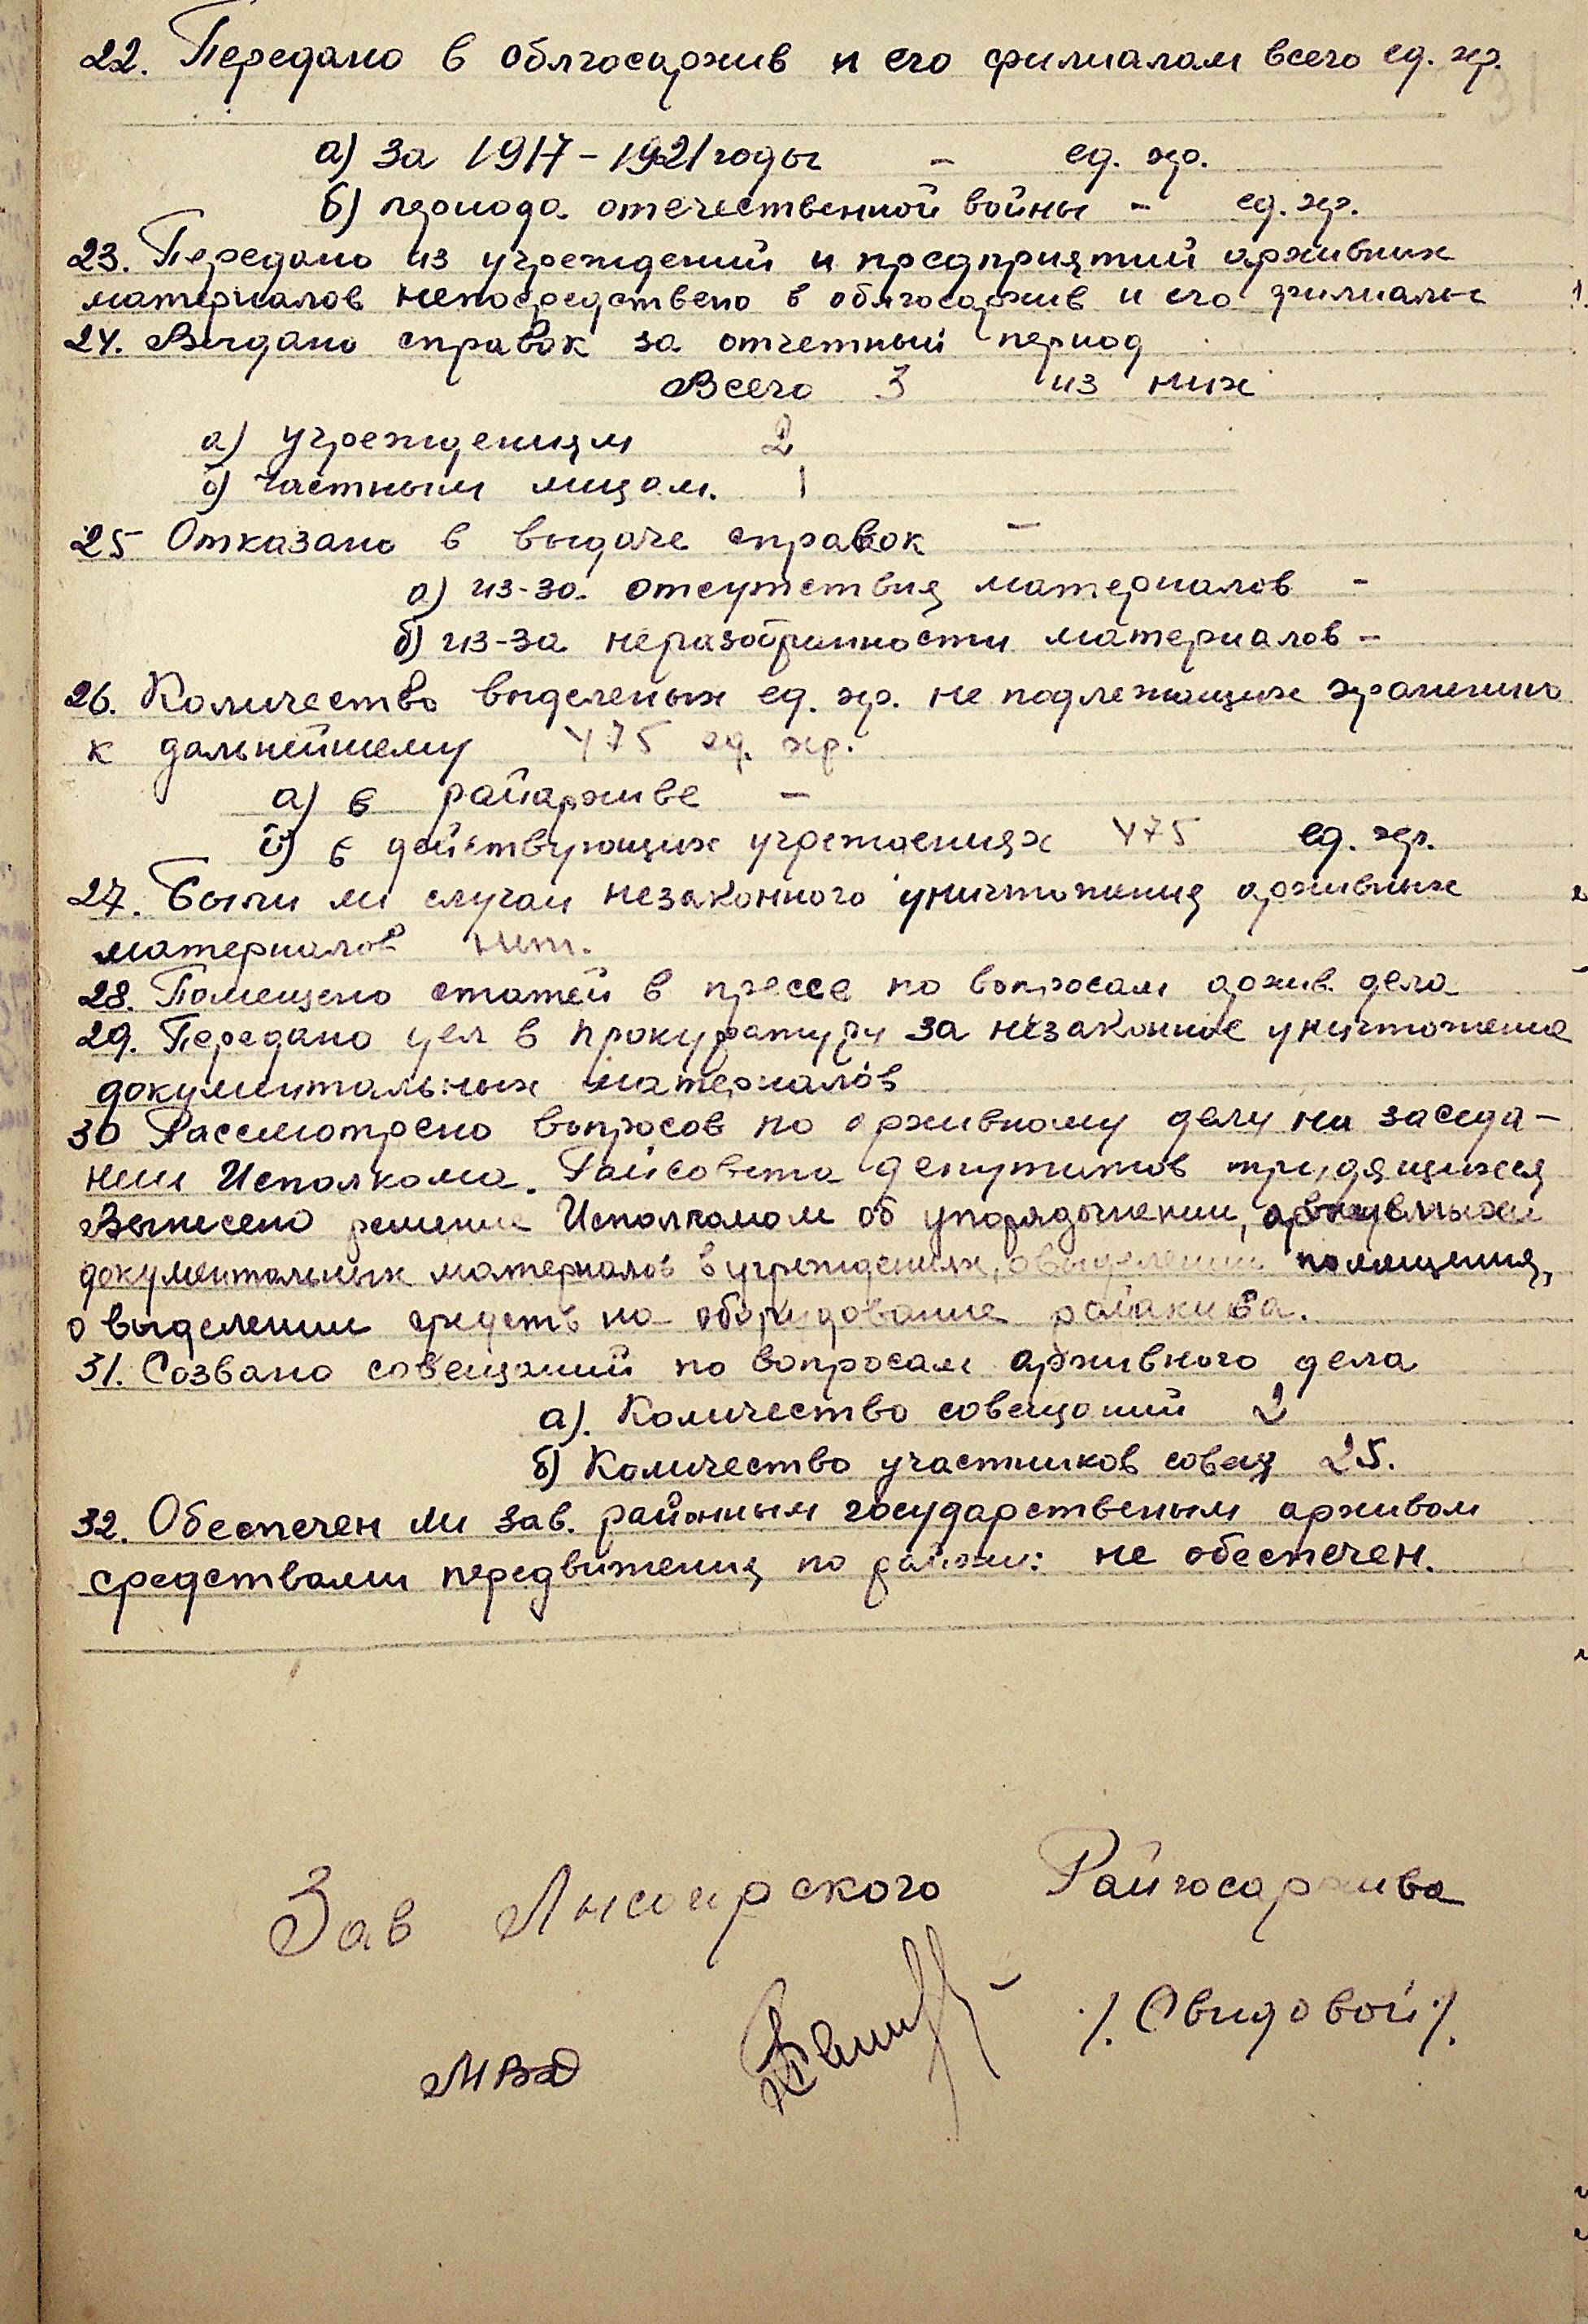 22. Передано в облгосархив и его филиалам всего ед. хр.
а) За 1917-1921 годы - ед. хр.
б) периода отечественной войны - ед. хр.
23. Передано из учреждений и предприятий архивных
материалов непосредствено в облгосархив и его филиалы
24. Выдано справок за отчетный период
Всего 3 из них
а) учреждениям 2
б) частным лицам. 1
25 Отказано в выдаче справок -
а) из-за отсутствия материалов -
б) из-за неразобранности материалов -
26. Количество выделеных ед. хр. не подлежащих хранению
к дальнейшему 475 ед. хр.
а) в райархиве -
б) в действующих учреждениях 475 ед. хр.
27. Были ли случаи незаконного уничтожения архивных
материалов нет.
28. Помещено статей в прессе по вопросам архив. дела
29. Передано дел в прокуратуру за незаконное уничтожение
документальных материалов
30 Рассмотрено вопросов по архивному делу на заседа-
нии Исполкома. Райсовета депутатов трудящихся
Вынесено решение Исполкомом об упорядочении,
документальных материалов в учреждениях, о выделении помещения,
о выделении средств на оборудование
31. Созвано совещаний по вопросам архивного дела
а). Количество совещаний 2
б) Количество участников совещ 25.
32. Обеспечен ли зав. районным государственым архивом
средствами передвижения по району: не обеспечен.
Зав Лысогорского Райгосархива
МВД ./. Свидовой ./.